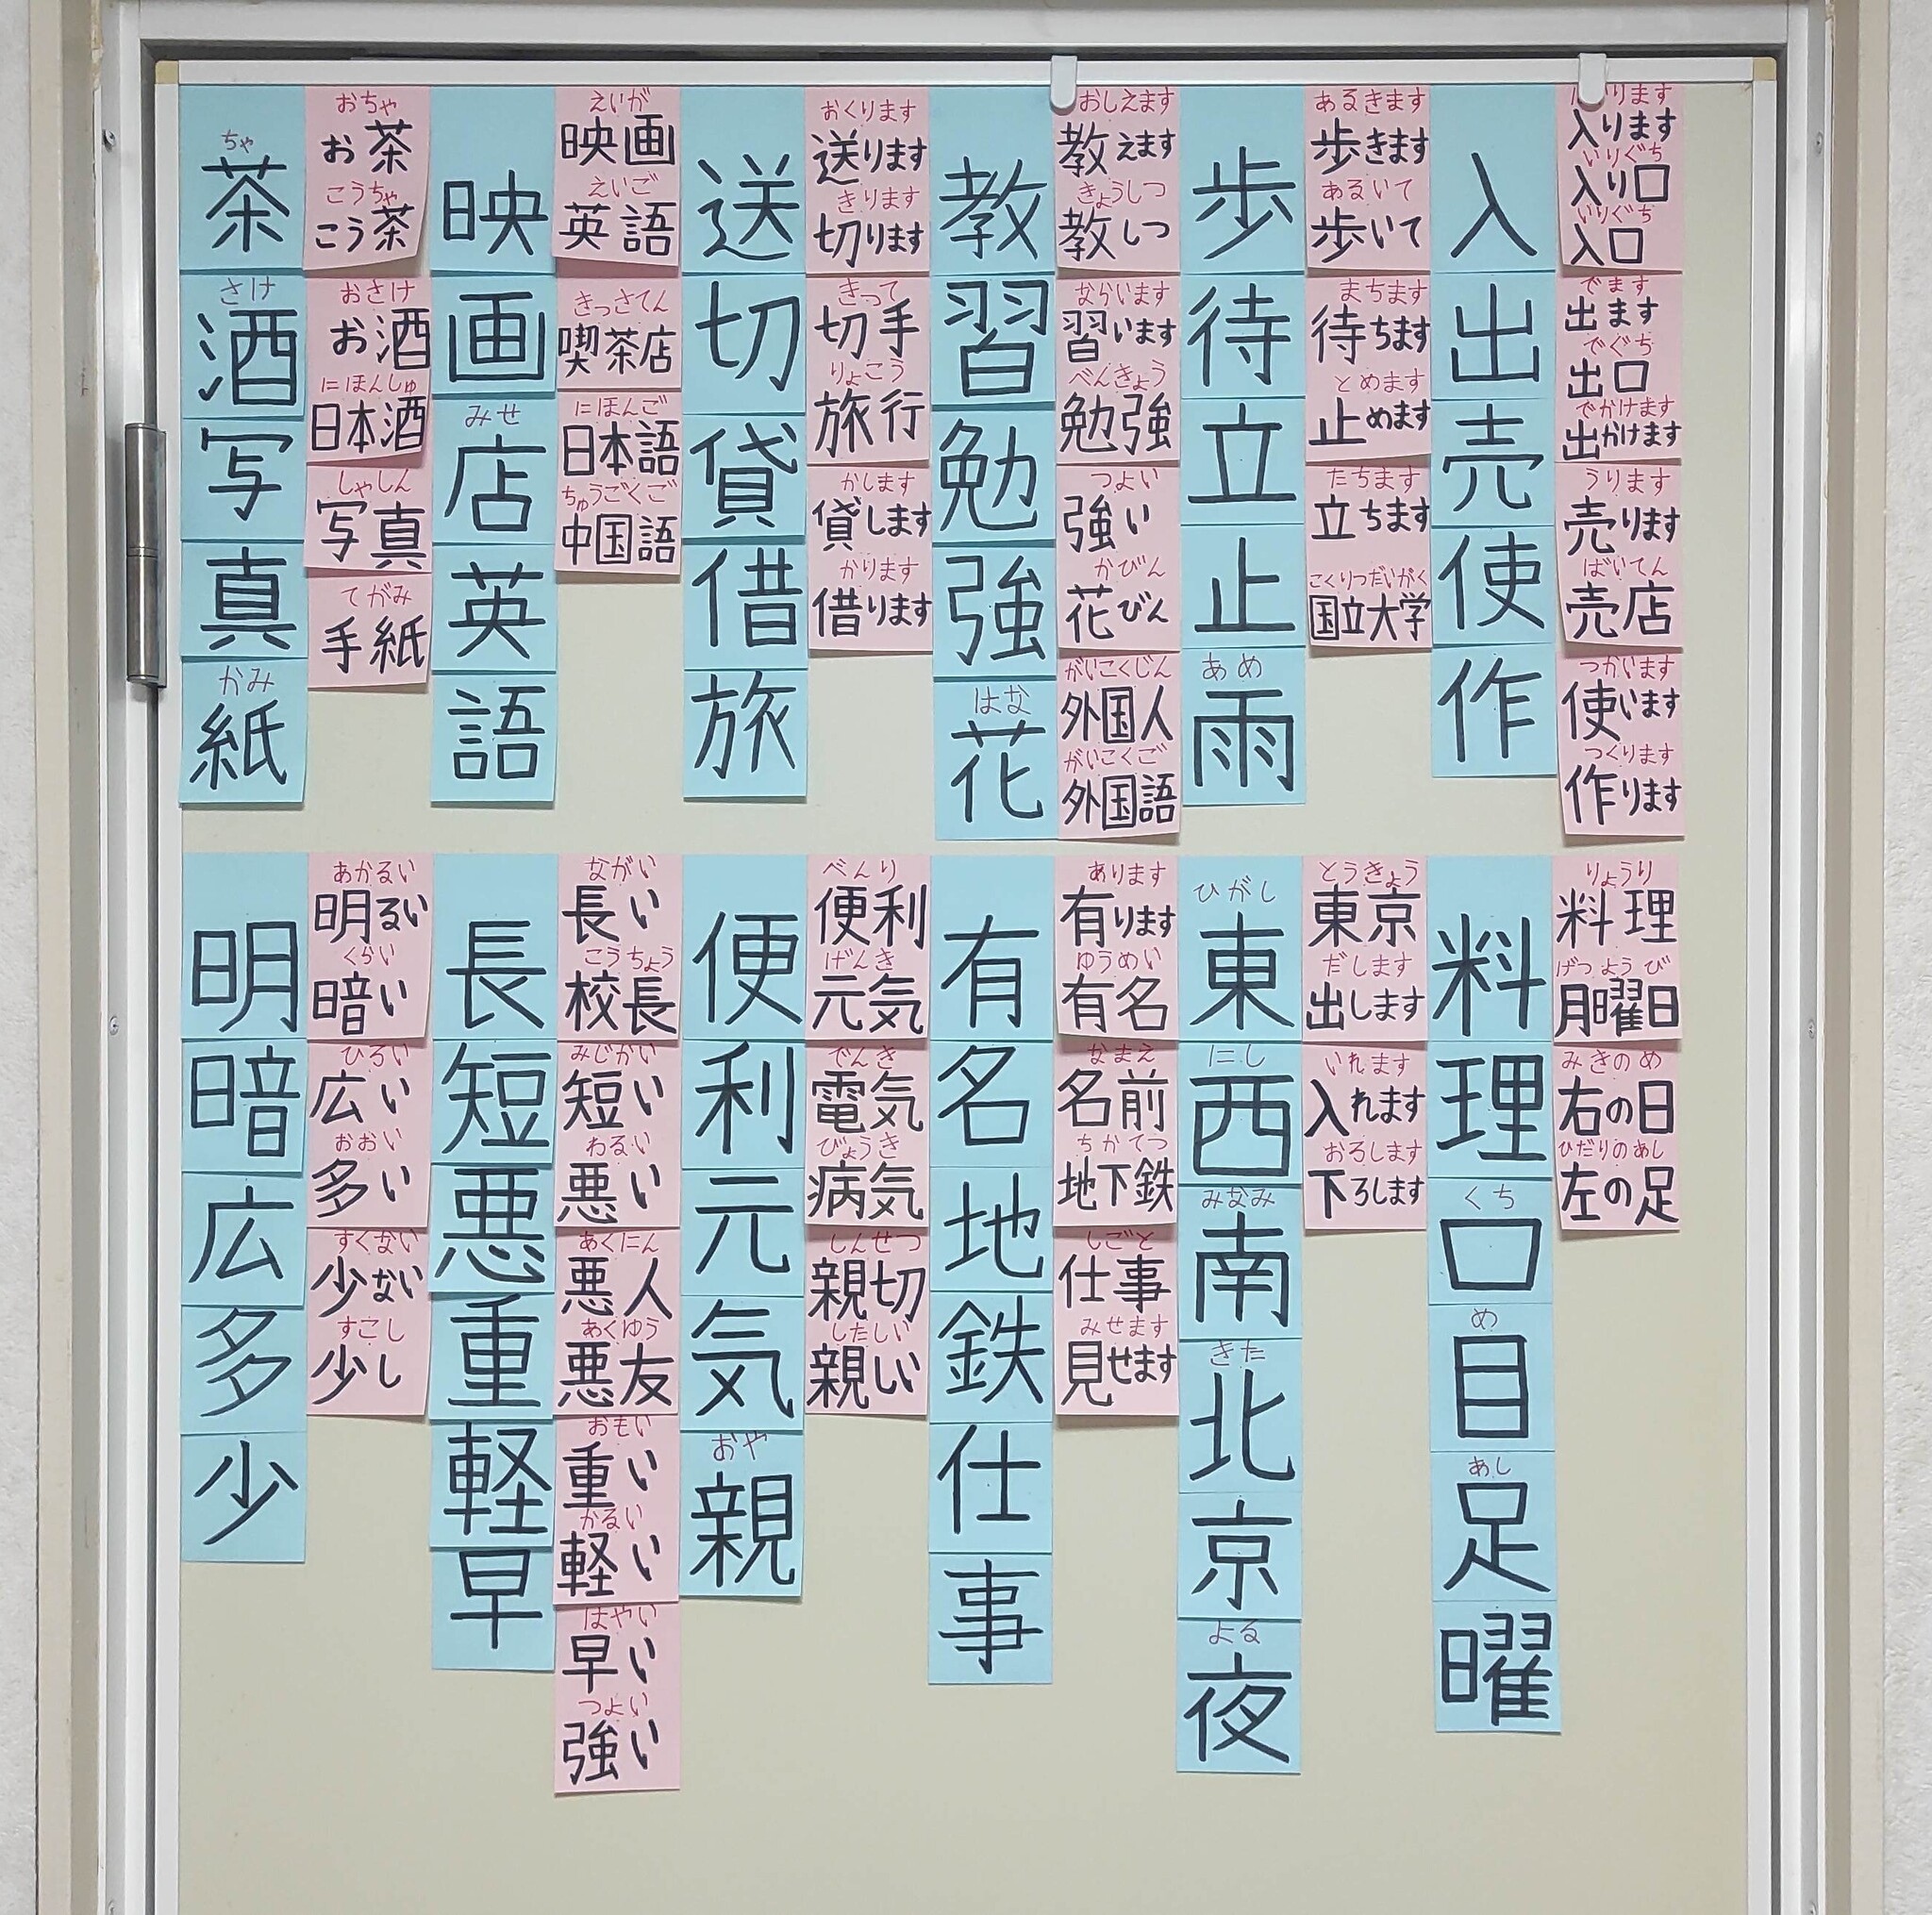 ちゃ
茶
さけ
酒
写
真
かみ
紙
おちゃ
お茶
こうちゃ
こう茶
おさけ
お酒
にほんしゅ
日本酒
しゃしん
写真
てがみ
手紙
映
画
みせ
店
英
語
えいが
映画
えいご
英語
きっさてん
喫茶店
にほんご
日本語
ちゅうごくご
中国語
送
切
貸
借
旅
おくります
送ります
きります
切ります
きって
切手
りょこう
旅行
かします
貸します
かります
借ります
教
習
勉
強
はな
花
おしえます
教えます
きょうしつ
教しつ
ならいます
習います
べんきょう
勉強
つよい
強い
かびん
花びん
がいこくじん
外国人
がいこくご
外国語
歩
待
立
止
あめ
雨
あるきます
歩きます
あるいて
歩いて
まちます
待ちます
とめます
止めます
たちます
立ちます
こくりつだいがく
国立大学
入
出
売
使
作
入ります
いりぐち
入り口
いりぐち
入口
でます
出ます
でぐち
出口
でかけます
出かけます
うります
売ります
ばいてん
売店
つかいます
使います
つくります
作ります
明
暗
広
多
少
あかるい
明るい
くらい
暗い
ひろい
広い
おおい
多い
すくない
少ない
すこし
少し
長
短
悪
重
軽
早
ながい
長い
こうちょう
校長
みじかい
短い
わるい
悪い
あくにん
悪人
あくゆう
悪友
おもい
重い
かるい
軽い
はやい
早い
つよい
強い
便
利
元
気
おや
親
べんり
便利
げんき
元気
でんき
電気
びょうき
病気
しんせつ
親切
したしい
親しい
有
名
地
鉄
仕
事
あります
有ります
ゆうめい
有名
なまえ
名前
ちかてつ
地下鉄
しごと
仕事
みせます
見せます
ひがし
東
にし
西
みなみ
南
きた
北
京
よる
夜
とうきょう
東京
だします
出します
いれます
入れます
おろします
下ろします
料
理
くち
口
め
目
あし
足
曜
りょうり
料理
げつようび
月曜日
みきのめ
右の日
ひだりのあし
左の足